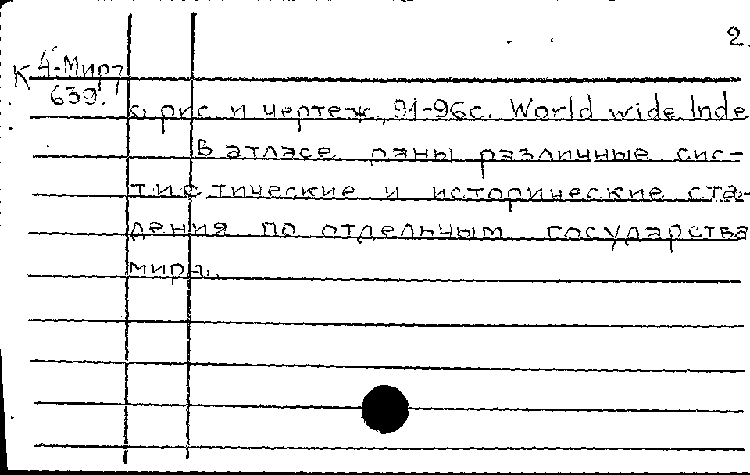 2.
К 4-Мир7
639.
с рис и чертеж, 91-96с. World wide Inde
В атласе даны различные сис-
тистические и исторические ста-
дения по отдельным государства
мира.